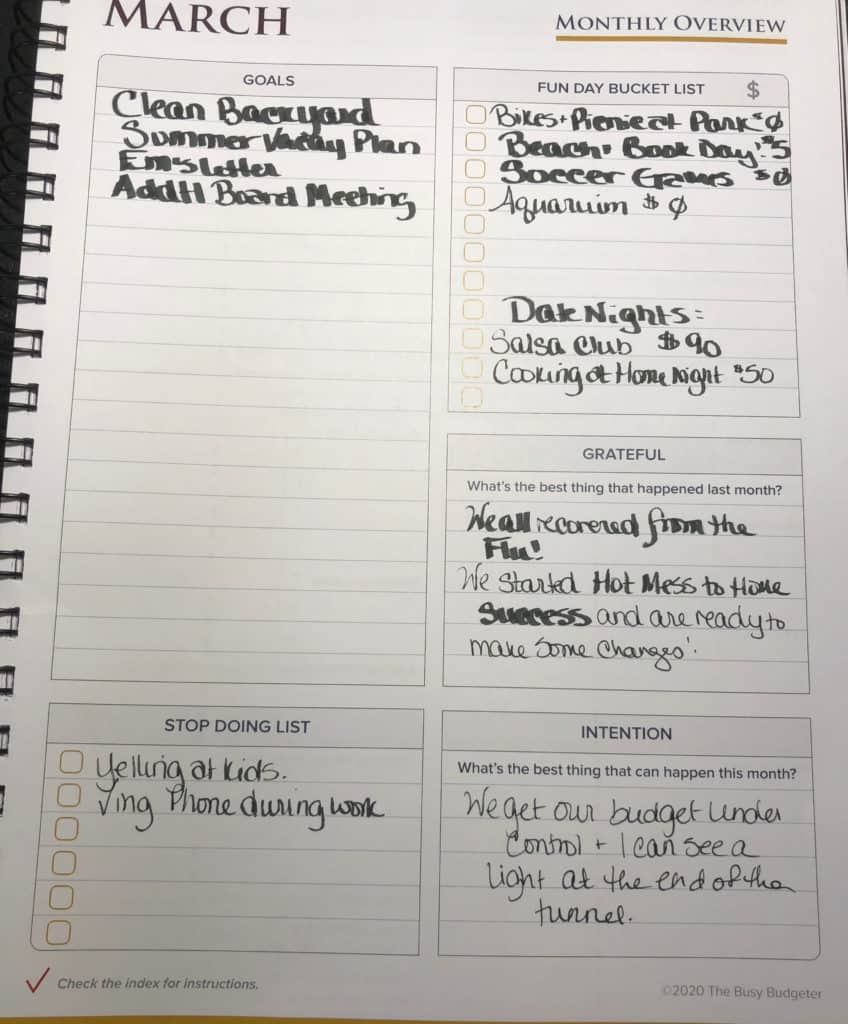 MARCH
MONTHLY OVERVIEW
GOALS
Clean Backyard
Summer Vacay Plan
Em's Letter
Meeting
FUN DAY BUCKET LIST $
Bikes + Picnic at Park $0
Beach + Book Day! $5
Soccer Games $0
Aquaruim $0
Date Nights:
Salsa Club $90
Cooking at Home Night $50
GRATEFUL
What's the best thing that happened last month?
We all recovered from the
Flu!
We Started Hot Mess to Home
Success and are ready to
make some changes!
STOP DOING LIST
Yelling at kids.
Phone during work
INTENTION
What's the best thing that can happen this month?
We get our budget under
Control + I can see a
light at the end of the
tunnel.
Check the index for instructions.
©2020 The Busy Budgeter